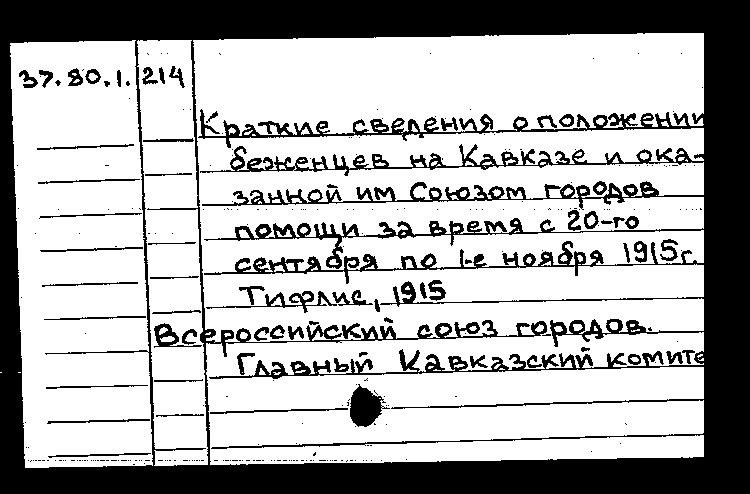 37.80.1. 214
Краткие сведения о положении
беженцев на Кавказе и ока-
занной им Союзом городов
помощи за время с 20-го
сентября по 1-е ноября 1915г.
Тифлис, 1915
Всероссийский союз городов.
Главный Кавказский комите